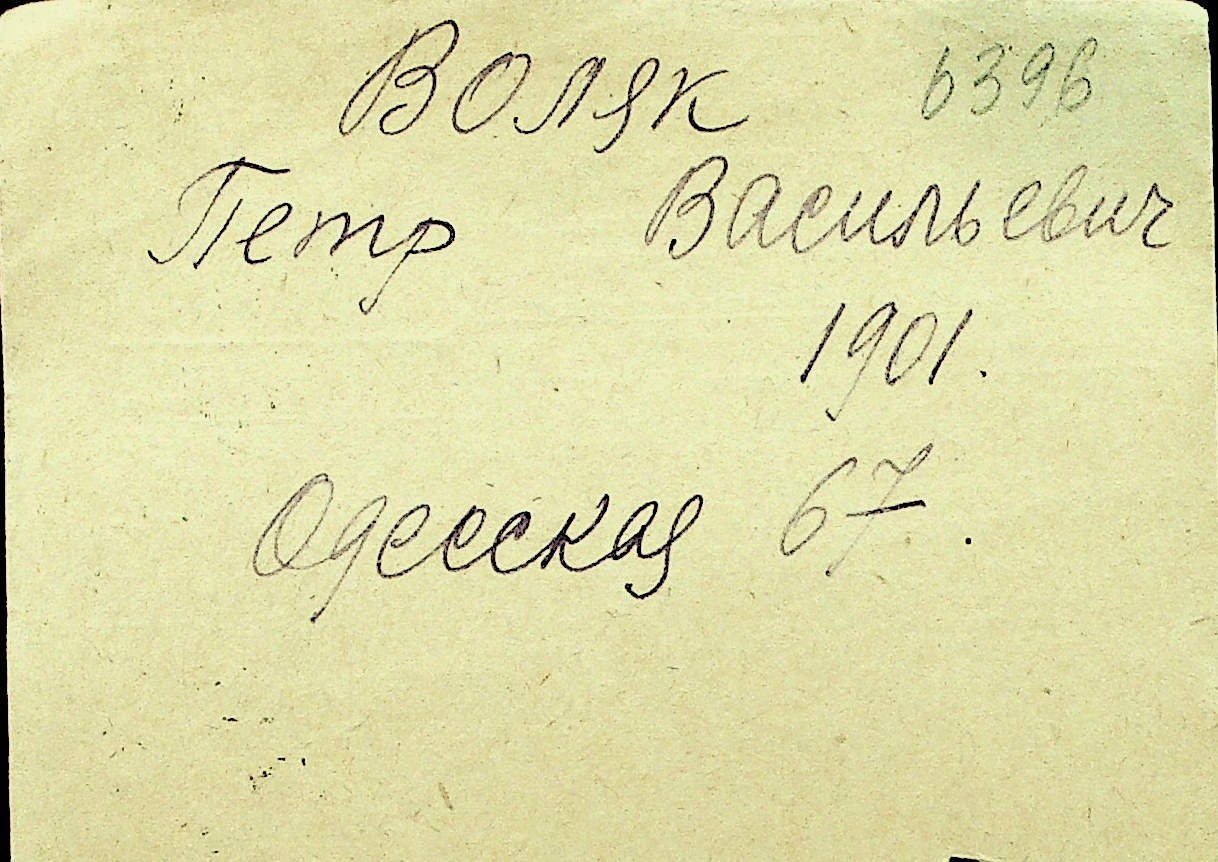 Воляк 6396
Петр Васильевич
1901.
Одесская 67.